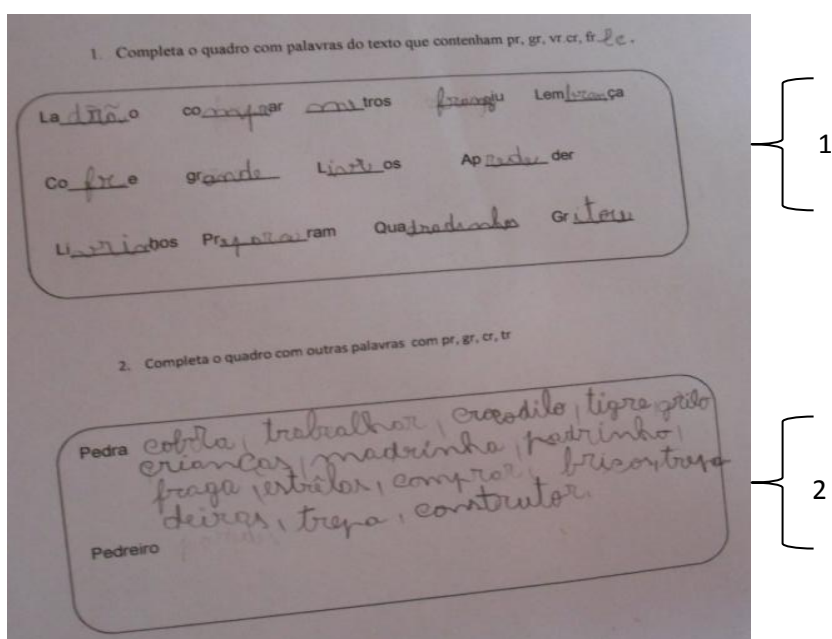 1. Completa o quadro com palavras do texto que contenham pr, gr, vr cr, fr le.
Ladrão comprar outros frangiu Lembrança
Cofre grande Livros Aprender
Livrinhos Prepararam Quadradinhos Gritou
1
2. Completa o quadro com outras palavras com pr, gr, cr, tr
Pedra cobrla, trabralhar, crocodilo, tigre, grilo
crianças, madrinha, padrinho,
fraga, estrêlas, comprar, bricos, trepa
deiras, trepa, construtor.
Pedreiro
2